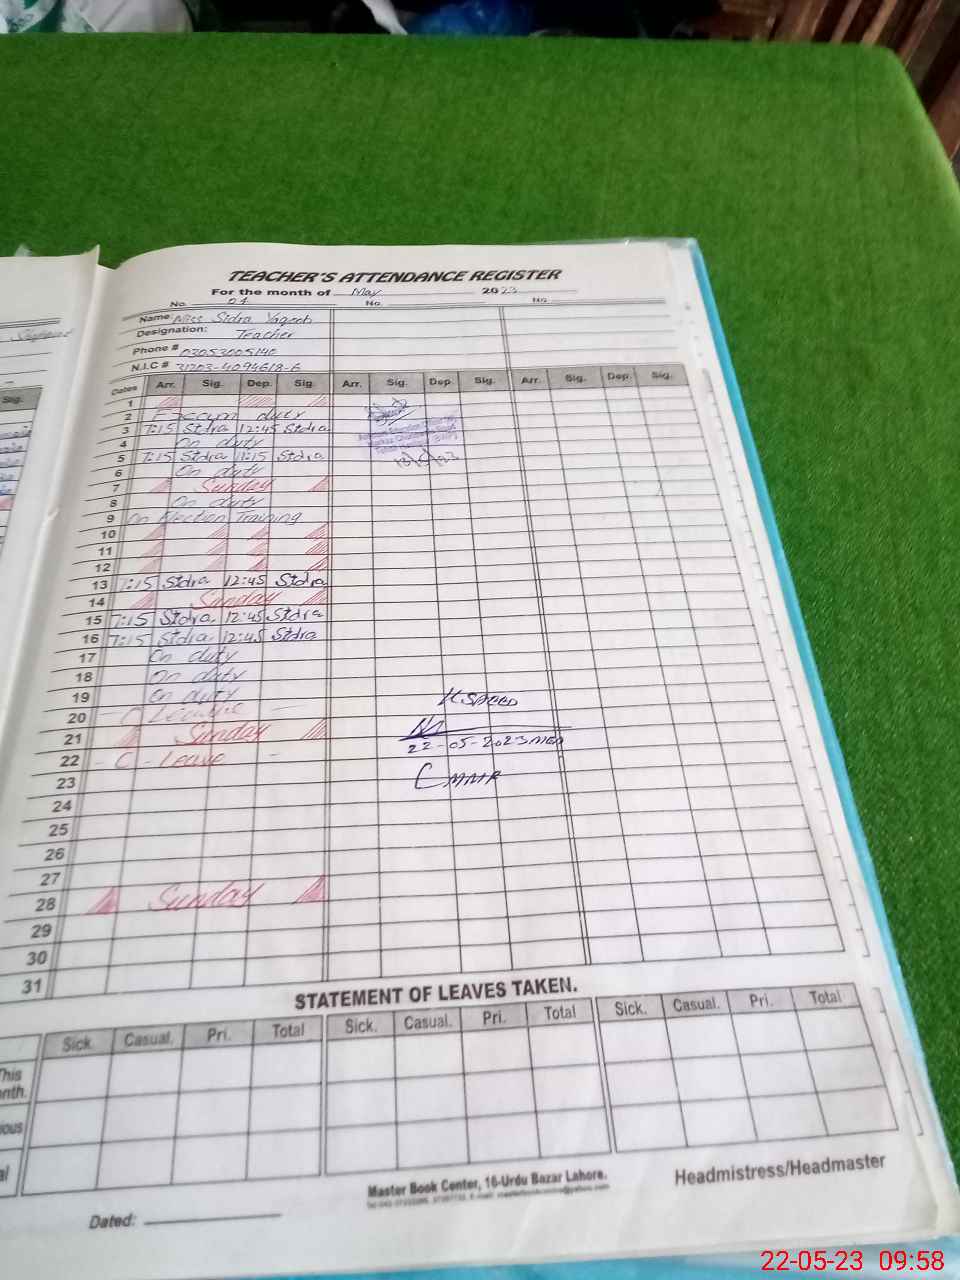 TEACHER'S ATTENDANCE REGISTER
For the month of May 2023
No. 04 No. No.
Name Miss Sidra Yaqoob
Designation: Teacher
Phone # 03053005140
N.I.C # 31203-4094618-6
Dates Arr. Sig. Dep. Sig. Arr. Sig. Dep. Sig. Arr. Sig. Dep. Sig.
1
2 Exam duty
3 7:15 Sidra 12:45 Sidra
4 On duty
5 7:15 Sidra 11:15 Sidra
6 On duty
7 Sunday
8 On duty
9 On Election Training
10
11
12
13 7:15 Sidra 12:45 Sidra
14 Sunday
15 7:15 Sidra 12:45 Sidra
16 7:15 Sidra 12:45 Sidra
17 On duty
18 On duty
19 On duty
20 - C Leave -
21 Sunday
22 - C - Leave -
23
24
25
26
27
28 Sunday
29
30
31
K SAEED
22-05-2023
STATEMENT OF LEAVES TAKEN.
Sick. Casual. Pri. Total Sick. Casual. Pri. Total Sick. Casual. Pri. Total
This
nth.
ious
al
Master Book Center, 16-Urdu Bazar Lahore.
Headmistress/Headmaster
Dated:
22-05-23 09:58